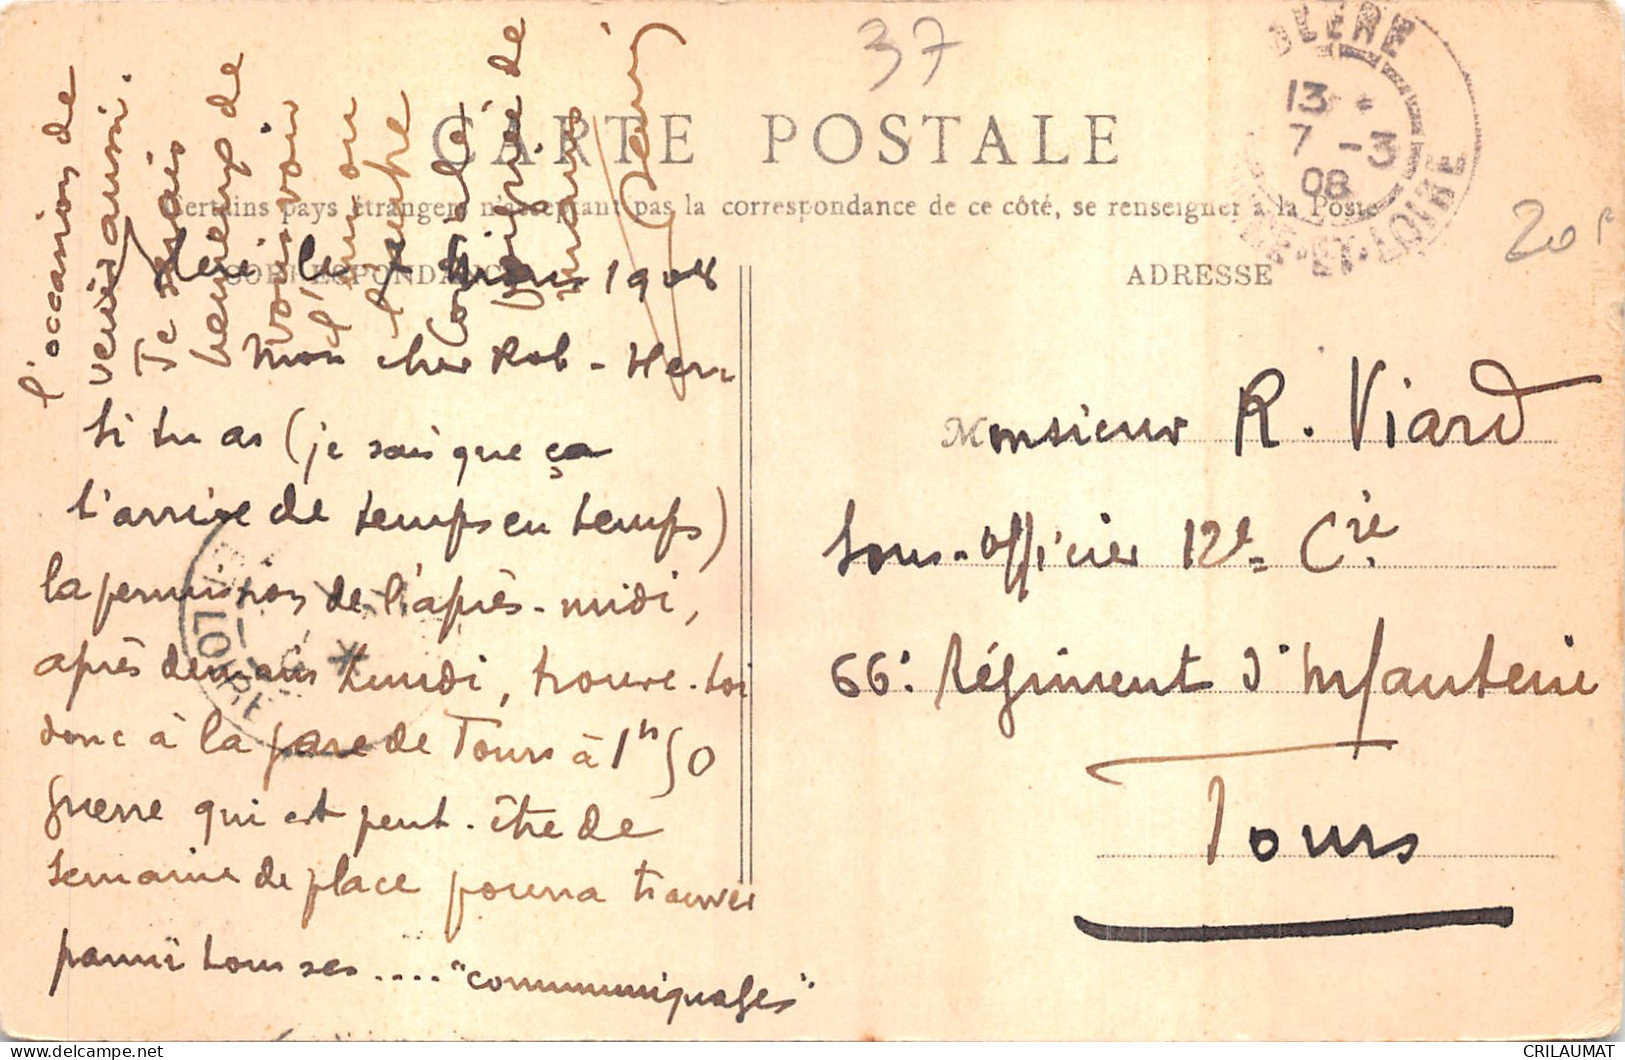 37
CARTE POSTALE
Certains pays étrangers n'acceptant pas la correspondance de ce côté, se renseigner à la Poste
CORRESPONDANCE
ADRESSE
BLÉRÉ
13
7 -3
08
INDRE-ET-LOIRE
20f
Bléré le 7 Mars 1908
Mon cher Rob-Hen
Si tu as (je sais que ça
t'arrive de temps en temps)
la permission de l'après-midi,
après demain lundi, trouve-toi
donc à la gare de Tours à 1h50
guerre qui est peut-être de
semaine de place pourra trouver
parmi tous ses .... "communiquages"
l'occasion de
venir aussi.
Je serais
heureux de
vous voir
l'un ou
l'autre
Cordiale
poignée de
mains
Monsieur R. Viard
Sous-officier 12e Cie
66e Régiment d'Infanterie
Tours
LOIRE
CRILAUMAT